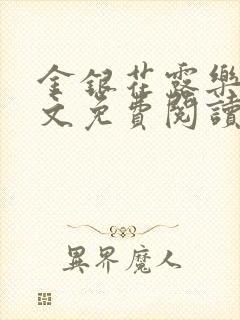 金銀花露樂
文免費閱讀
異界魔人